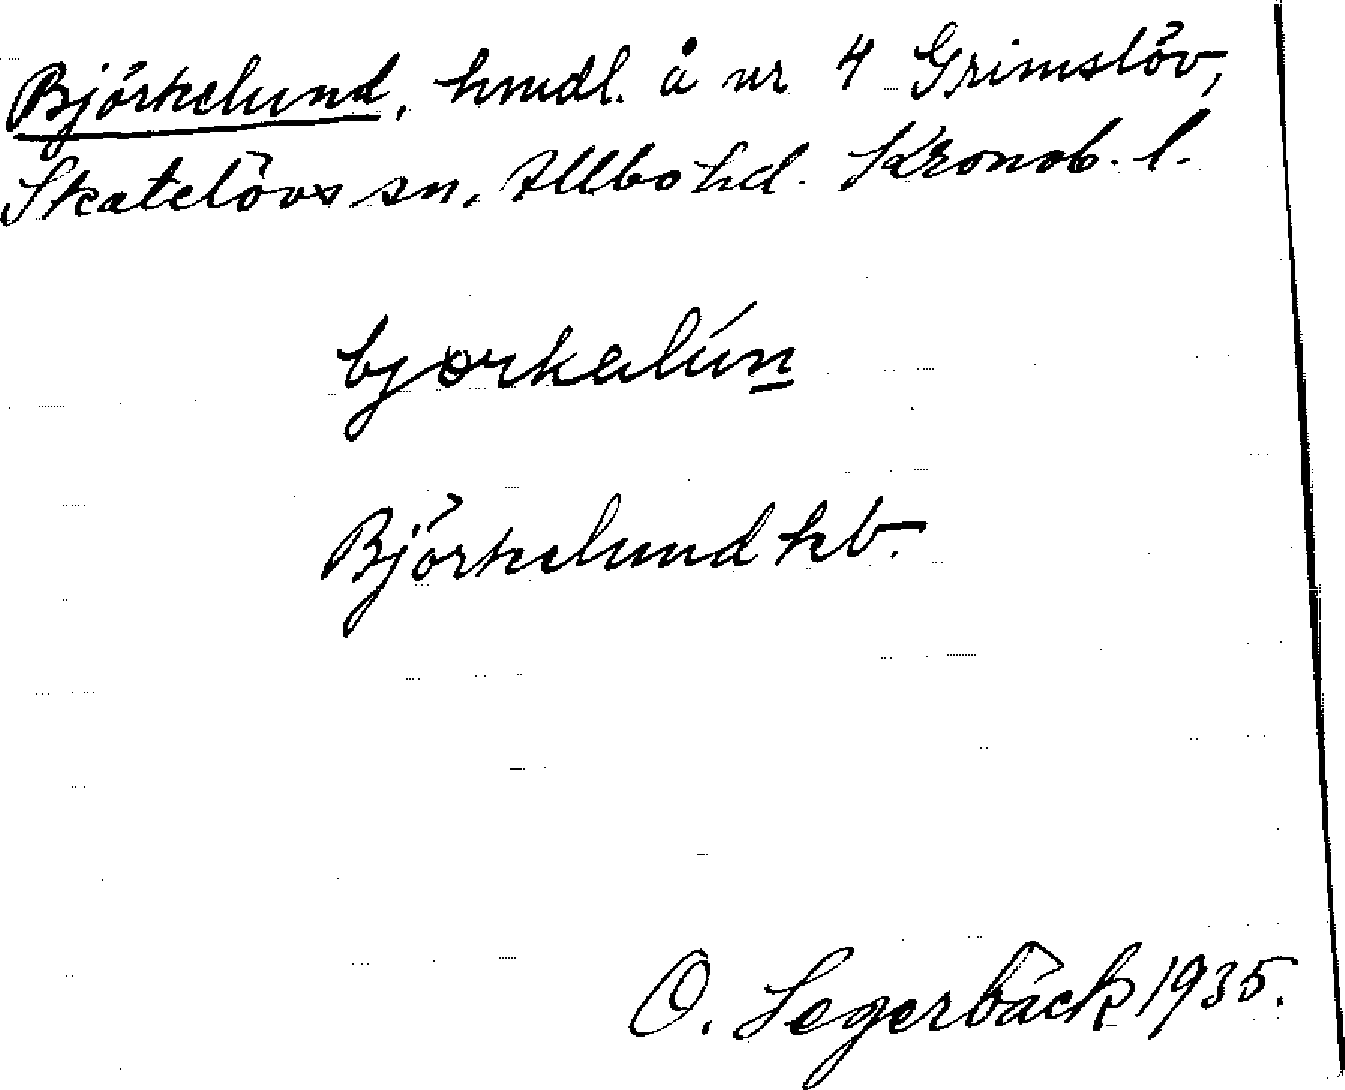 Björkelund, hmdl. å nr 4 Grimslöv,
Skatelövs sn, Allbo hd. Kronob. l.
bjørkalún
Björkelund kb.
O. Segerbäck 1935.